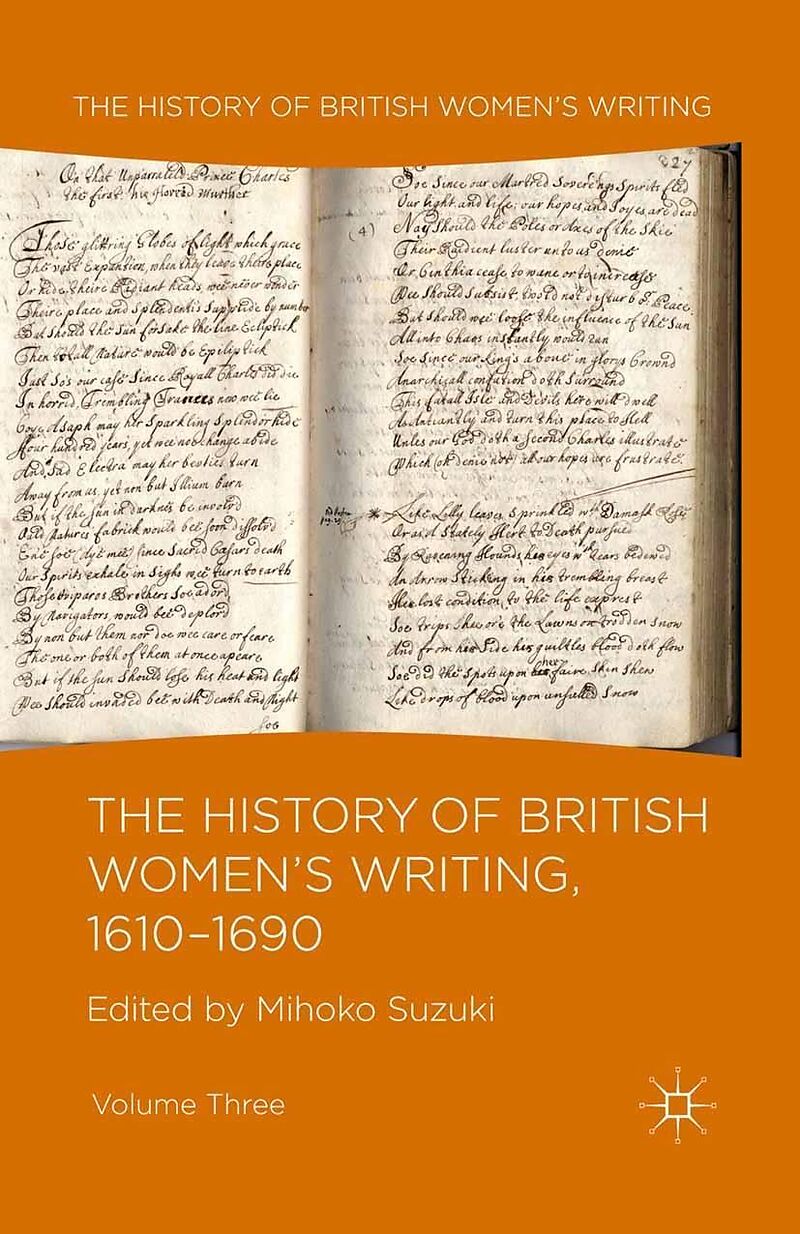 THE HISTORY OF BRITISH WOMEN'S WRITING
On that Unparraleld Prince Charles
the first his Horred Murther
Those glittring Globes of light which grace
The vast Expantion, when they leave theire place
Or hide theire Radiant heads, wee never wonder
Theire place and Splendentis by number
But should the Sun forsake the line Ecliptick
Then all Nature would be Epiliptick
Just So's our case Since Royall Charles did die
In horrid, Trembling Trances now wee lie
may her Sparkling Splendor hide
ffour hundred years, yet wee noe change abide
And Sad Electra may her besties turn
Away from us, yet non but Illium burn
But if the Sun in darknes be involvd
Old Natures fabrick would bee soon dissolvd
Ene soe (Aye mee) since Sacred Cæsars death
Our Spirits exhale in Sighs wee turn to earth
Those Brothers Soe adord
By Navigators, would bee deplord
By non but them nor doe wee care or feare
The one or both of them at once apeare
But if the Sun Should lose his heat and light
Wee should invaded bee with Death and Night
Soe
27
Soe Since our Martred Soverengs Spirits fled
Our light and life, our hopes and Joyes are dead
(4)
Nay should the Poles or Axes of the Skie
Their Radient luster unto us denie
Or Cinthia cease to wane or to increase
Wee Should Subsist, twould not disturb or Peace
But Should wee loose the influence of the Sun
All into Chaos instantly would run
Soe Since our King's above in glorys Crownd
Anarchicall confution doth Surround
This fatall Isle and Devils here will dwell
As Antiantly and turn this place to Hell
Unles our God doth a Second Charles illustrate
Which (oh denie not) all our hopes are frustrate.
Like Lilly leaves Sprinkled wth Damask Rose
Or as A Stately Hert to Death pursued
By Ravening Hounds her eyes wth tears bedewed
An Arrow Sticking in her trembling breast
Her lost condition, to the life exprest
Soe trips Shee o're the Lawns on trodden Snow
And from her Side her guiltles blood doth flow
Soe did the Spots upon her faire Skin Shew
Like drops of blood upon unsullied Snow
THE HISTORY OF BRITISH
WOMEN'S WRITING,
1610–1690
Edited by Mihoko Suzuki
Volume Three